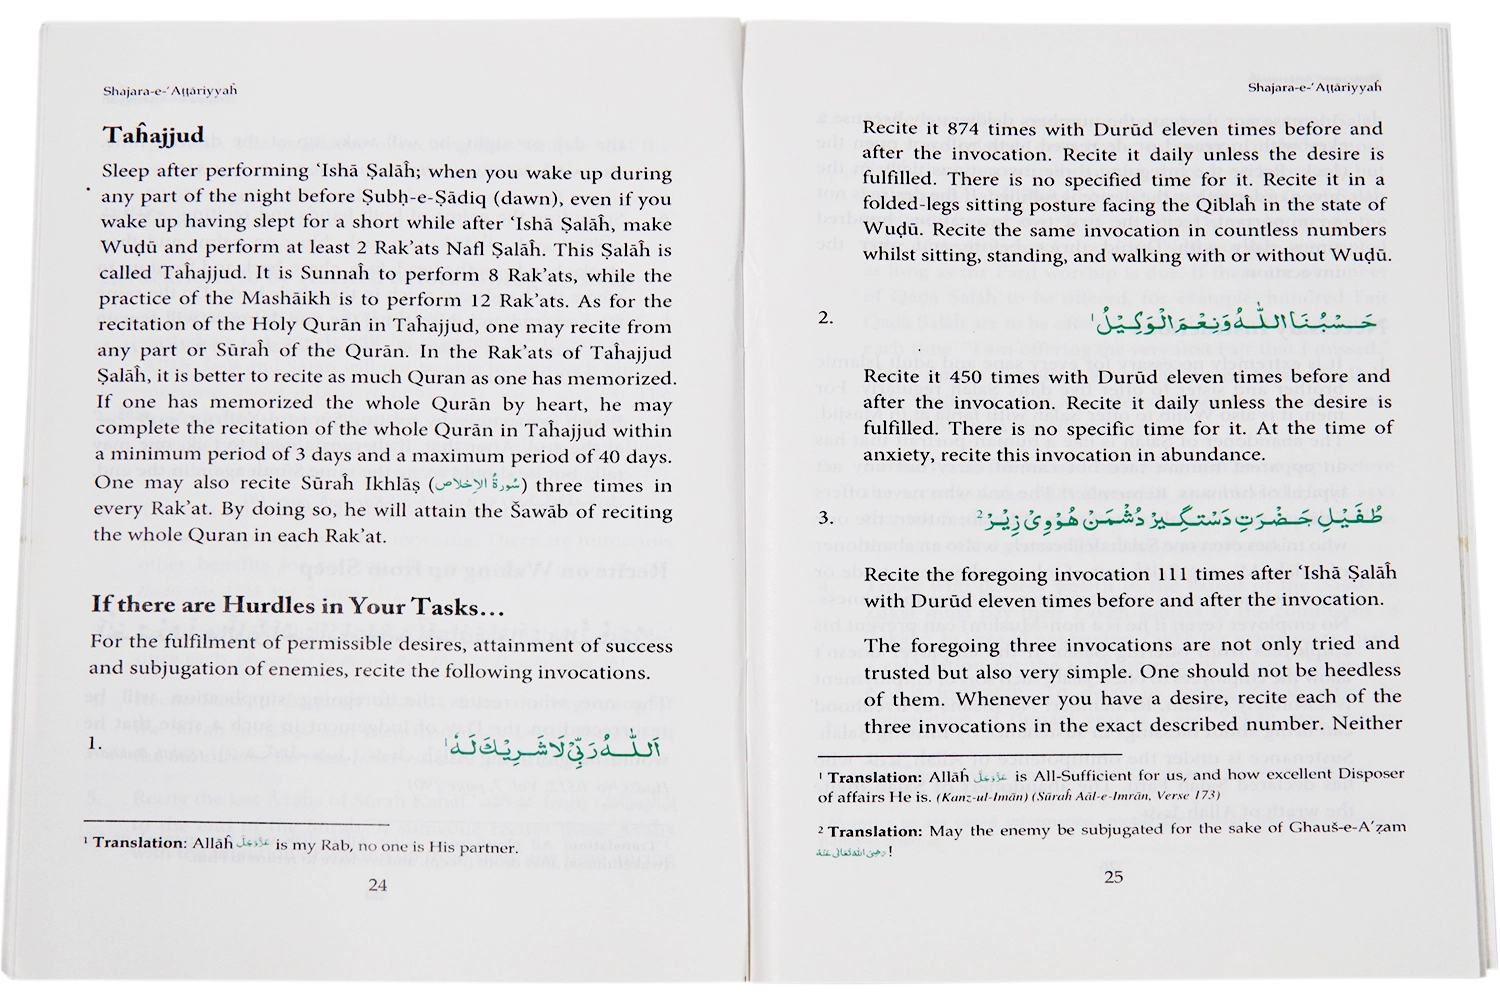 Shajara-e-‘Aṭṭāriyyaĥ
Taĥajjud
Sleep after performing ‘Ishā Ṣalāĥ; when you wake up during
any part of the night before Ṣubḥ-e-Ṣādiq (dawn), even if you
wake up having slept for a short while after ‘Ishā Ṣalāĥ, make
Wuḍū and perform at least 2 Rak’ats Nafl Ṣalāĥ. This Ṣalāĥ is
called Taĥajjud. It is Sunnaĥ to perform 8 Rak’ats, while the
practice of the Mashāikh is to perform 12 Rak’ats. As for the
recitation of the Holy Qurān in Taĥajjud, one may recite from
any part or Sūraĥ of the Qurān. In the Rak’ats of Taĥajjud
Ṣalāĥ, it is better to recite as much Quran as one has memorized.
If one has memorized the whole Qurān by heart, he may
complete the recitation of the whole Qurān in Taĥajjud within
a minimum period of 3 days and a maximum period of 40 days.
One may also recite Sūraĥ Ikhlāṣ (سُورَةُ الْاِخْلَاص) three times in
every Rak’at. By doing so, he will attain the Šawāb of reciting
the whole Quran in each Rak’at.
If there are Hurdles in Your Tasks…
For the fulfilment of permissible desires, attainment of success
and subjugation of enemies, recite the following invocations.
1. اَللّٰهُ رَبِّيْ لَا شَرِيْكَ لَهٗ ¹
¹ Translation: Allāĥ عَزَّوَجَلَّ is my Rab, no one is His partner.
24
Shajara-e-‘Aṭṭāriyyaĥ
Recite it 874 times with Durūd eleven times before and
after the invocation. Recite it daily unless the desire is
fulfilled. There is no specified time for it. Recite it in a
folded-legs sitting posture facing the Qiblaĥ in the state of
Wuḍū. Recite the same invocation in countless numbers
whilst sitting, standing, and walking with or without Wuḍū.
2. حَسْبُنَا اللّٰهُ وَنِعْمَ الْوَكِيْلُ ¹
Recite it 450 times with Durūd eleven times before and
after the invocation. Recite it daily unless the desire is
fulfilled. There is no specific time for it. At the time of
anxiety, recite this invocation in abundance.
3. طُفَيْلِ حَضْرَتِ دَسْتگِيْر دُشْمَنْ هُوْوِىْ زِيْرْ ²
Recite the foregoing invocation 111 times after ‘Ishā Ṣalāĥ
with Durūd eleven times before and after the invocation.
The foregoing three invocations are not only tried and
trusted but also very simple. One should not be heedless
of them. Whenever you have a desire, recite each of the
three invocations in the exact described number. Neither
¹ Translation: Allāĥ عَزَّوَجَلَّ is All-Sufficient for us, and how excellent Disposer
of affairs He is. (Kanz-ul-Imān) (Sūraĥ Aāl-e-Imrān, Verse 173)
² Translation: May the enemy be subjugated for the sake of Ghauš-e-A’ẓam
رَضِىَ اللهُ تَعَالٰى عَنْهُ !
25